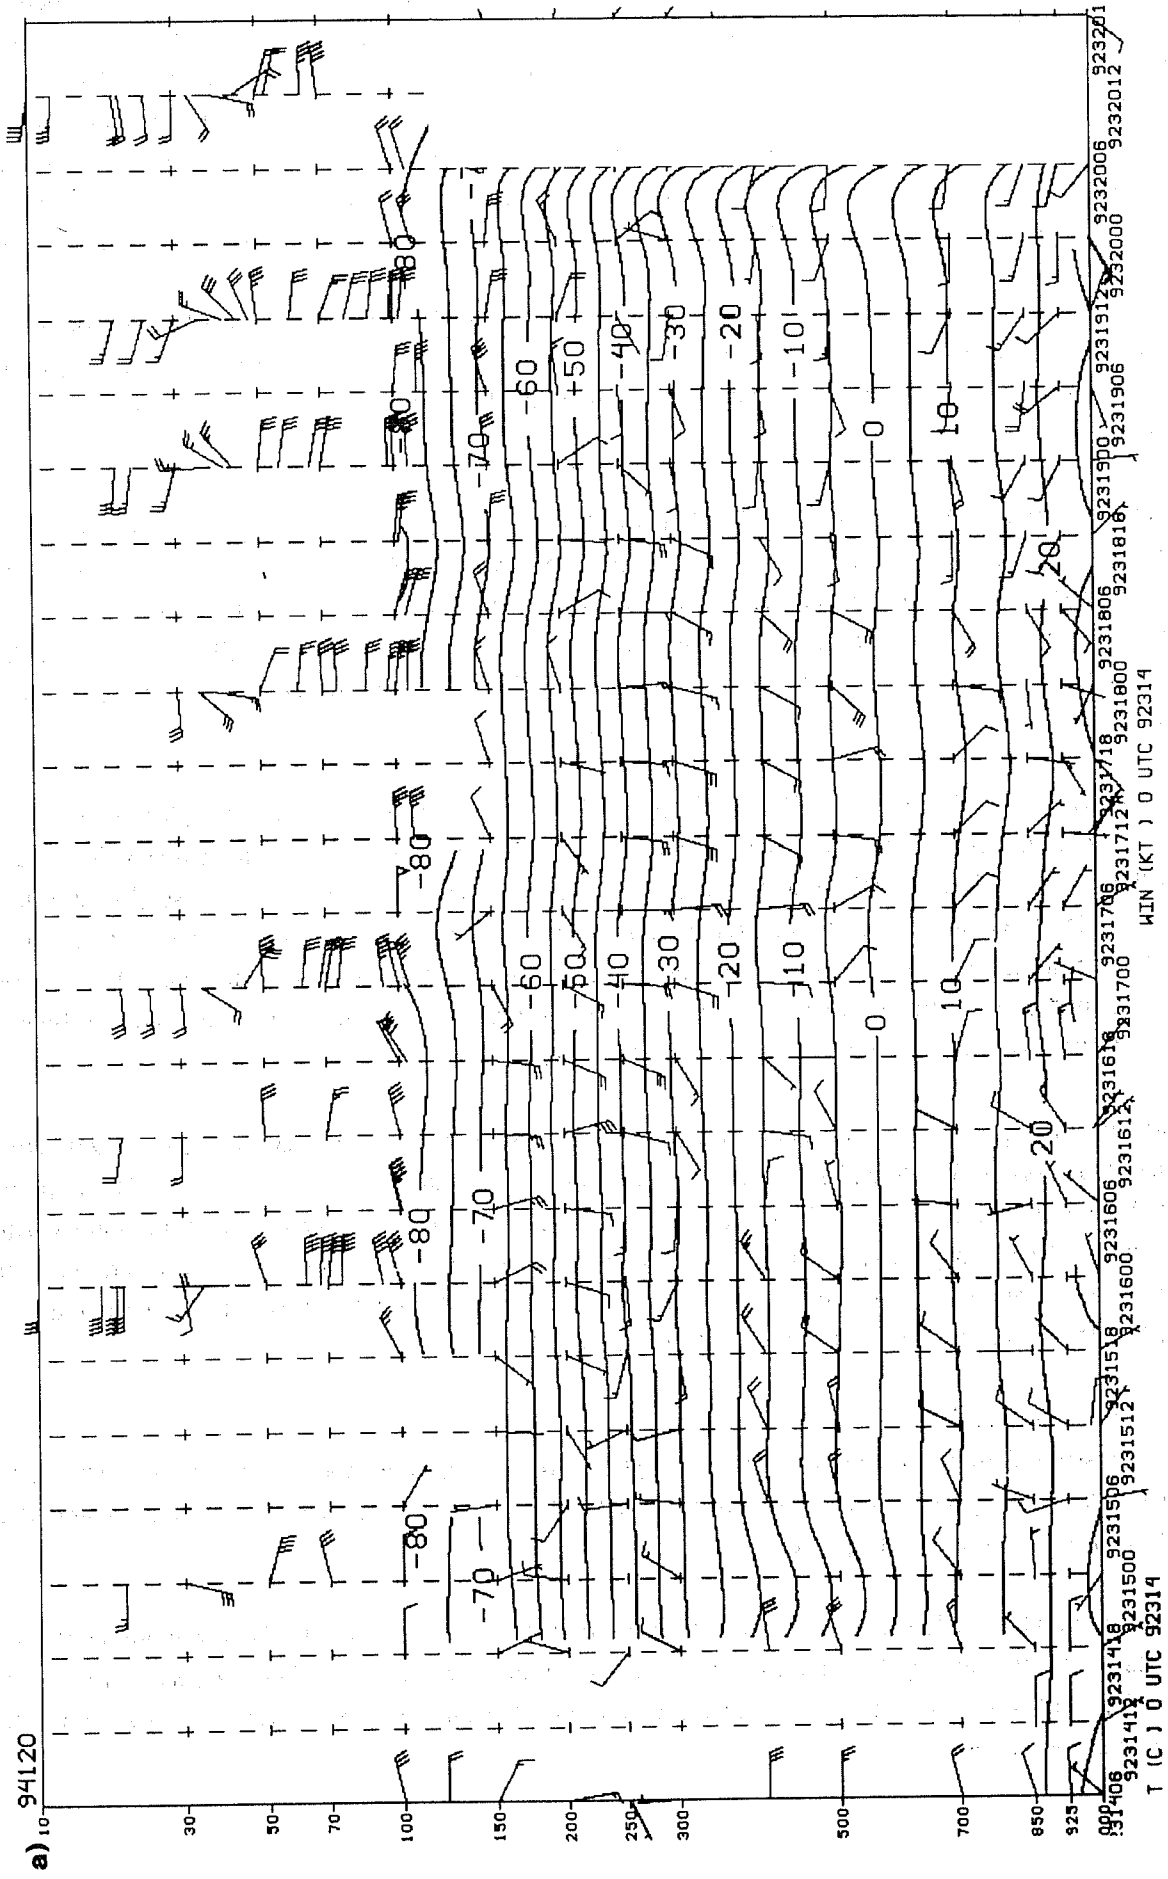 a)
94120
10
30
50
70
100
150
200
250
300
500
700
850
925
-80 -80 -80 -80
-70 -70 -70 -70
-60 -60 -60
-50 -50 -50
-40 -40 -40
-30 -30 -30
-20 -20 -20
-10 -10 -10
0 0
10 10
20 20
9231412
9231418
9231500
9231506
9231512
9231518
9231600
9231606
9231612
9231618
9231700
9231706
9231712
9231718
9231800
9231806
9231818
9231900
9231906
9231912
9232000
9232006
9232012
923201
T (C ) 0 UTC 92314
WIN (KT ) 0 UTC 92314